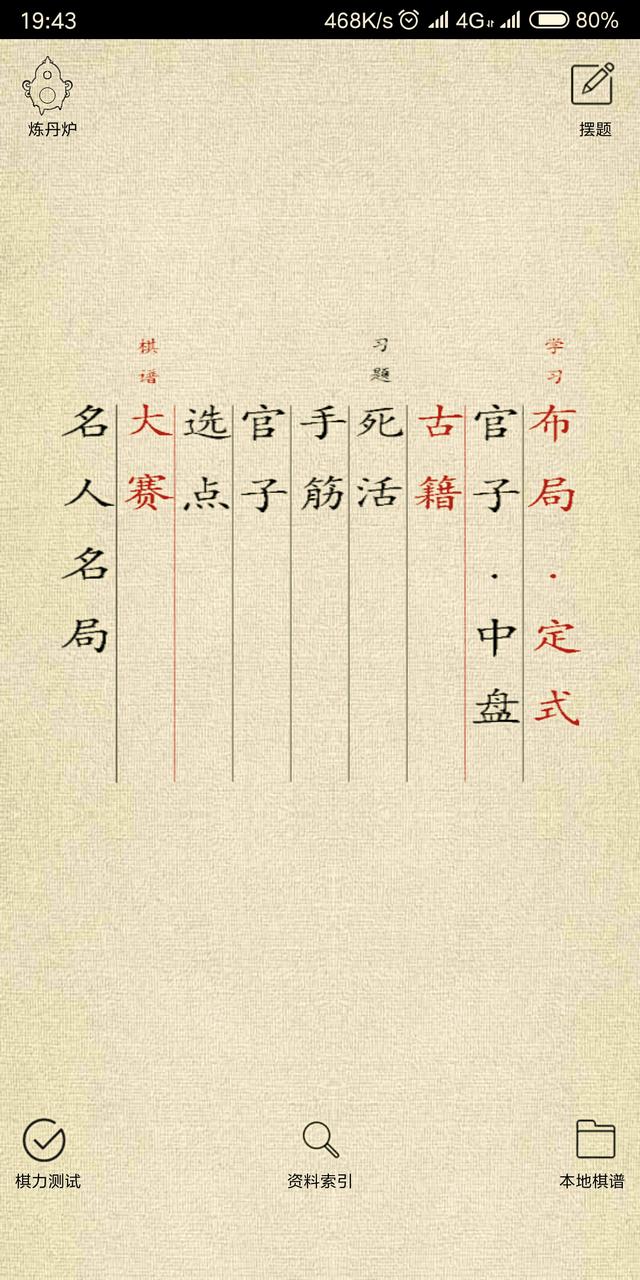 19:43
468K/s 4G 80%
炼丹炉
摆题
学习
布局·定式
官子·中盘
古籍
习题
死活
手筋
官子
选点
棋谱
大赛
名人名局
棋力测试
资料索引
本地棋谱